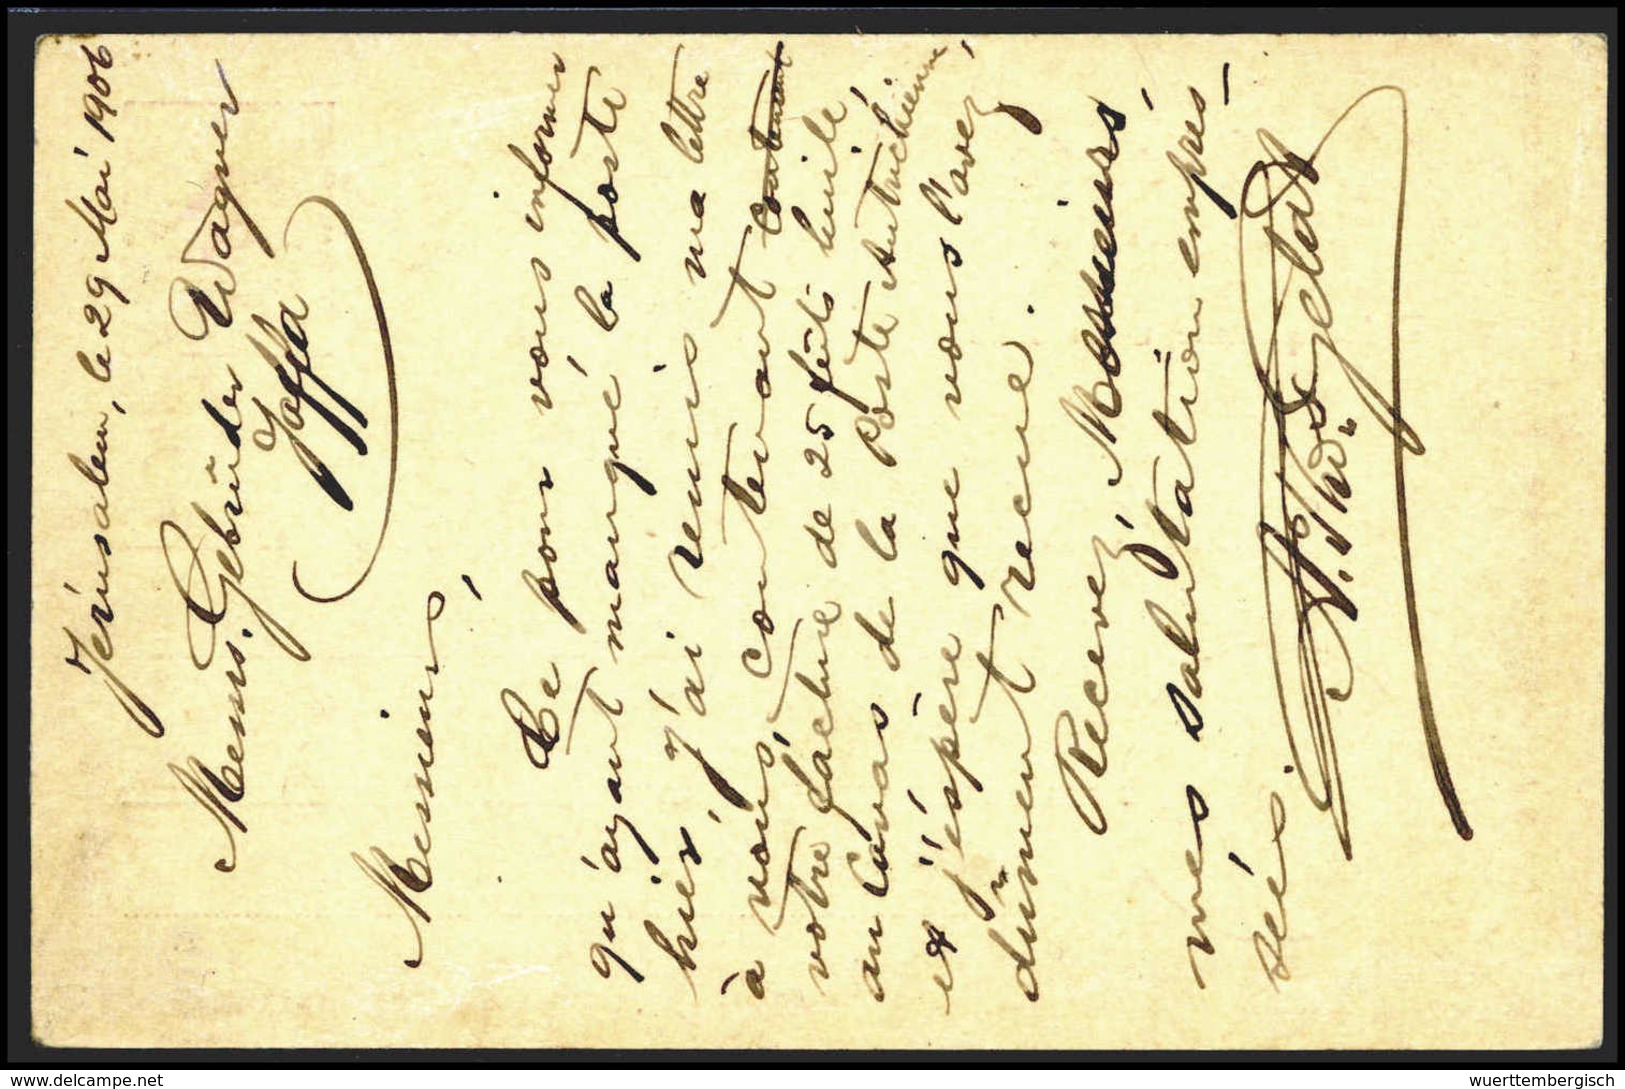 Jérusalem, le 29 Mai 1906
Messrs. Gebrüder Wagner
Jaffa
Messieurs,
Ce pour vous informer
qu'ayant manqué la poste
hiér, j'ai remis ma lettre
à vous, contenant
votre facture de 25 fûts huile,
au Cavas de la Poste Autrichienne,
et j'éspère que vous l'avez
dûment recue.
Recevez, Messieurs,
mes salutation empres-
sées.
delcampe.net
wuerttembergisch